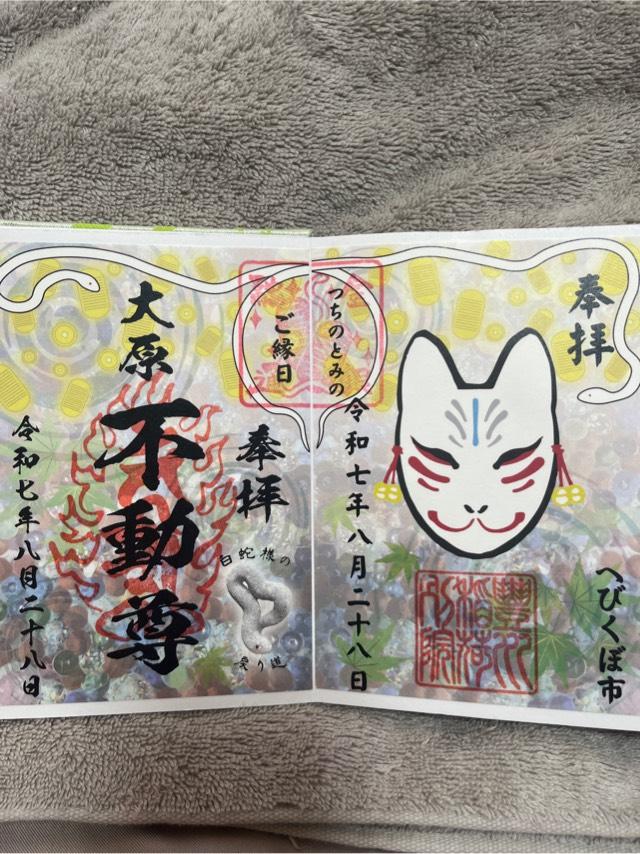 奉拝
へびくぼ市
豐川
稲荷
別院
令和七年八月二十八日
つちのとみの
ご縁日
奉拝
白蛇様の
大原
不動尊
令和七年八月二十八日